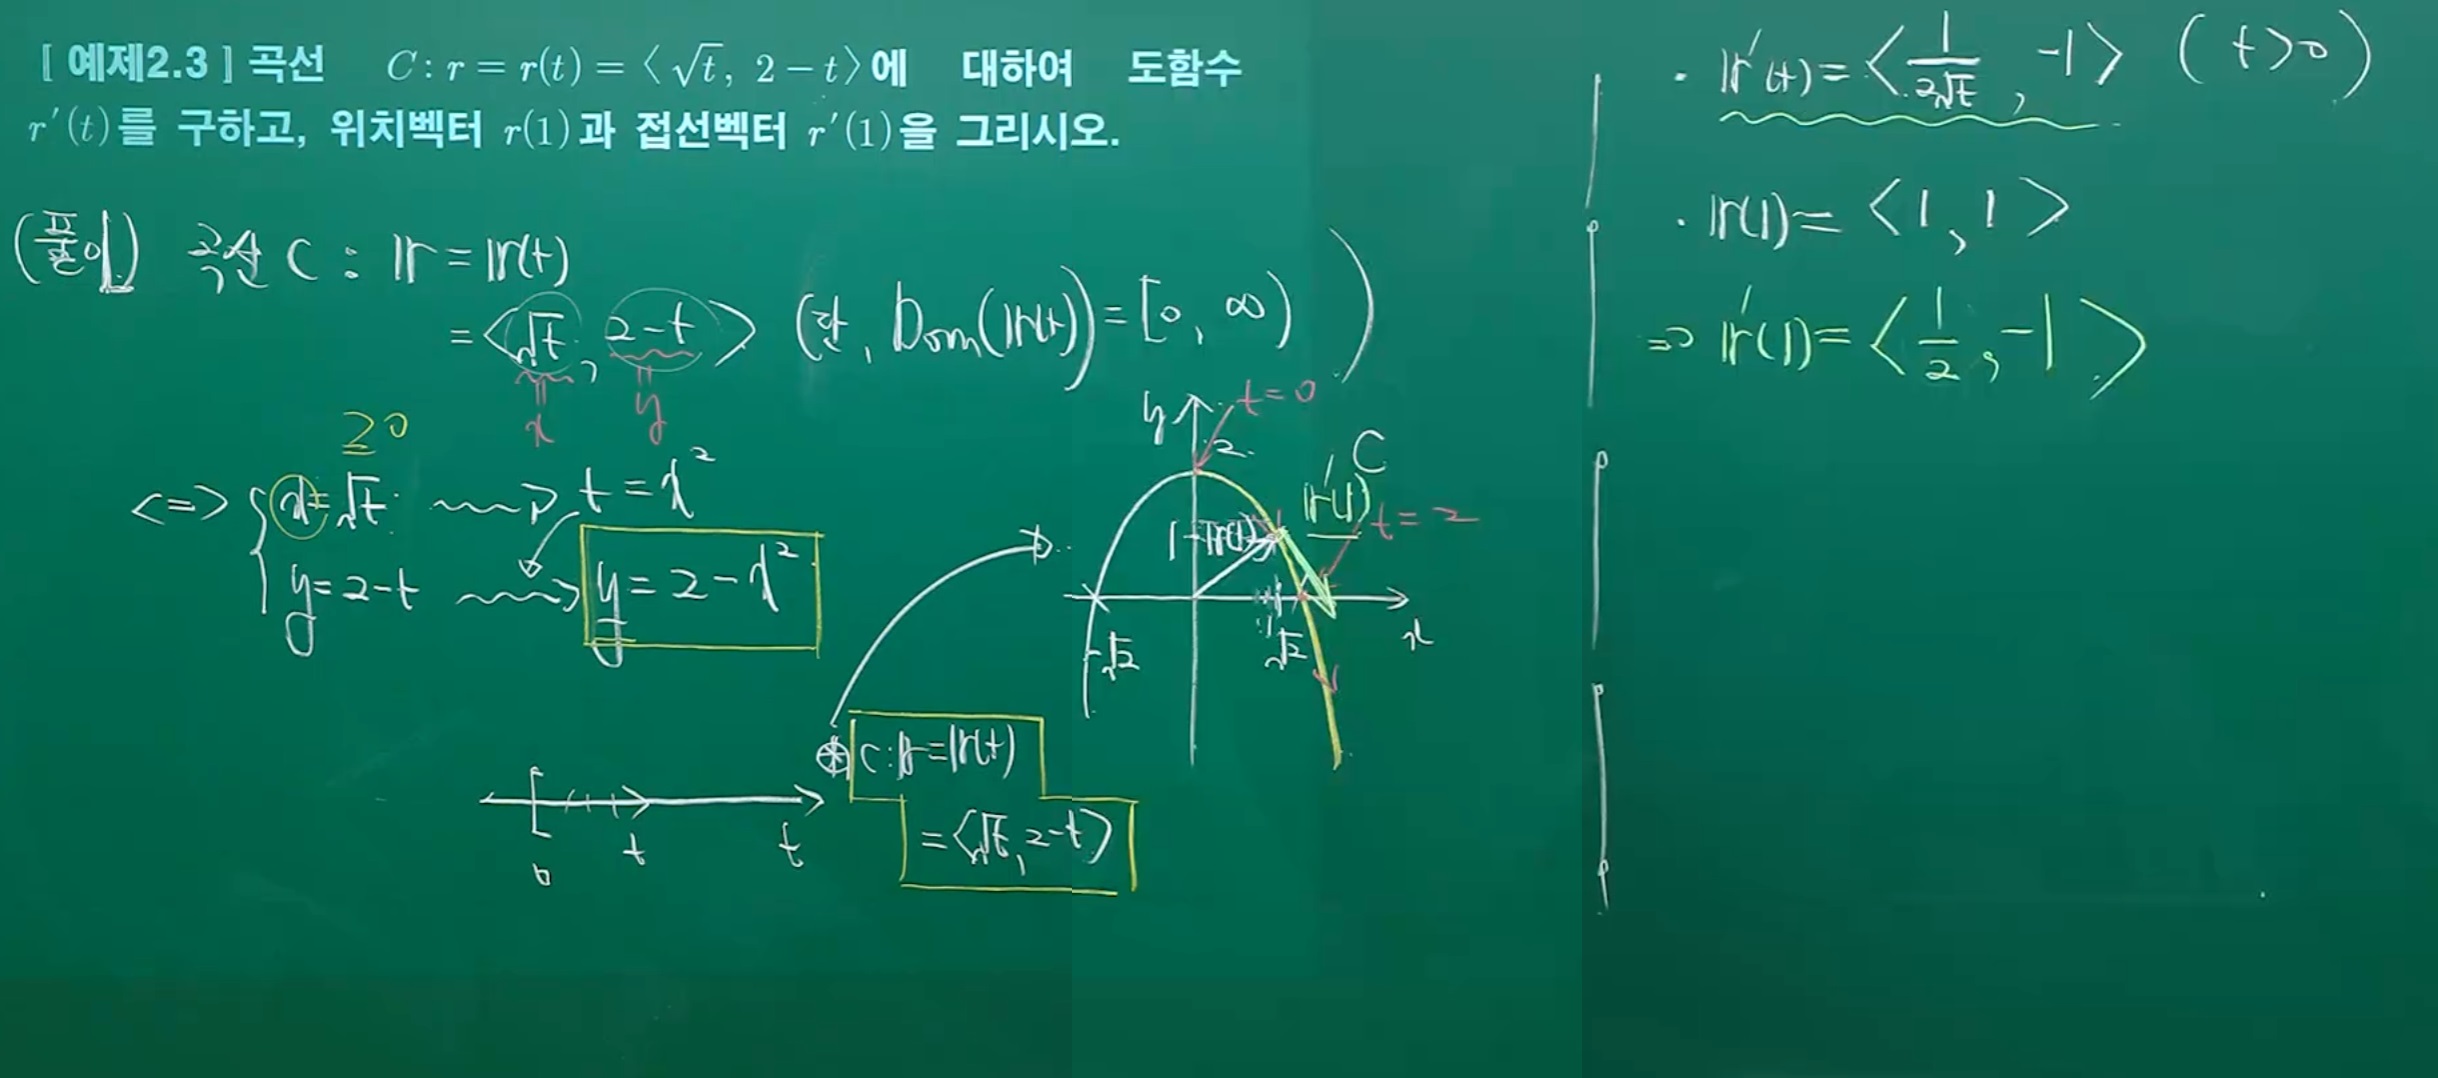 [ 예제2.3 ] 곡선 C : r = r(t) = ⟨ √t, 2 − t ⟩에 대하여 도함수
r′(t)를 구하고, 위치벡터 r(1)과 접선벡터 r′(1)을 그리시오.
(풀이) 곡선 C : r = r(t)
= ⟨√t, 2-t⟩ (단, Dom(r(t)) = [0, ∞) )
x y
≥0
<=> { x = √t t = x²
y = 2-t y = 2-x²
y t=0
2
C
r′(1) t=2
1 r(1)
1
-√2 √2 x
⊛ C : r = r(t)
= ⟨√t, 2-t⟩
0 t t
· r′(t) = ⟨1/2√t, -1⟩ (t>0)
· r(1) = ⟨1, 1⟩
=> r′(1) = ⟨1/2, -1⟩